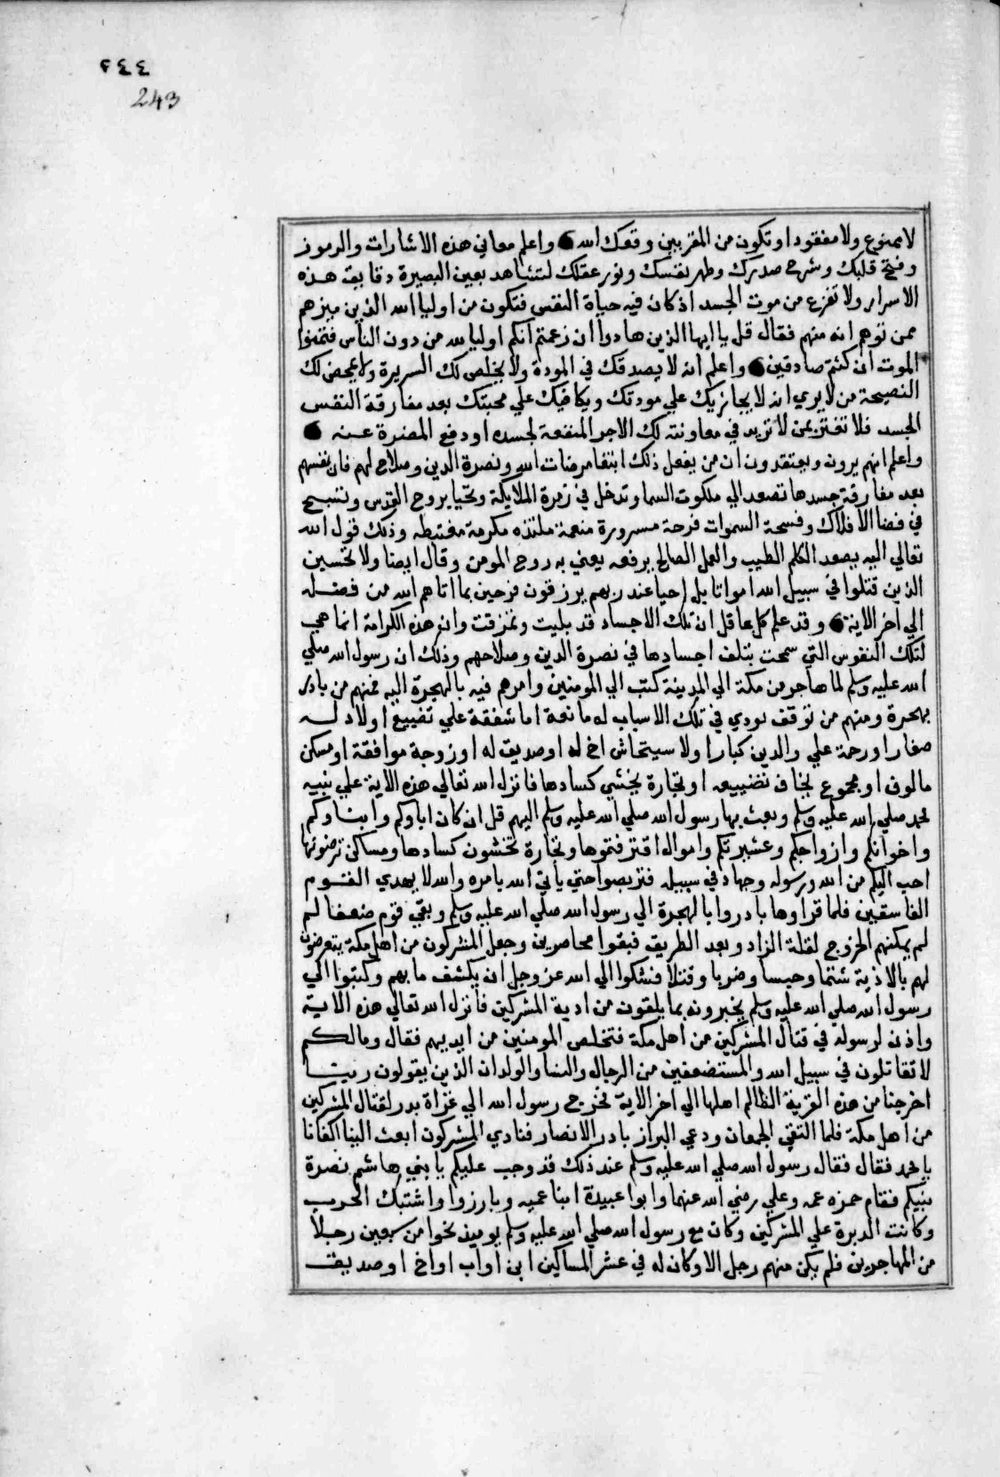 ٢٤٤
243
لا ممنوع ولا مفقود او تكون من المقربين وفقك الله واعلم معاني هذه الاشارات والرموز
وفتح قلبك وشرح صدرك وطهر نفسك ونور عقلك لتشاهد بعين البصيرة دقايق هذه
الاسرار ولا تفزع من موت الجسد اذ كان فيه حياة النفس فتكون من اوليا الله الذين ميزهم
ممن توهم انه منهم فقال قل يا ايها الذين هادوا ان زعمتم انكم اوليا لله من دون الناس فتمنوا
الموت ان كنتم صادقين واعلم انه لا يصدقك في المودة ولا يخلص لك السريرة ولا يمحض لك
النصيحة من لا يري انه لا يجازيك علي مودتك ويكافيك علي محبتك بعد مفارقة النفس
الجسد فلا تغتر بمن لا تريد في معاونته لك الاجر المنفعة لجسده او دفع المضرة عنه
واعلم انهم يرون ويعتقدون ان من يفعل ذلك ابتغا مرضات الله ونصرة الدين وصلاح لهم فان نفسهم
بعد مفارقة جسدها تصعد الي ملكوت السما وتدخل في زمرة الملايكة وتحيا بروح القدس وتسبح
في فضا الافلاك وفسحة السموات فرحة مسرورة منعمة ملتذه مكرمة مغتبطه وذلك قول الله
تعالي اليه يصعد الكلم الطيب والعمل الصالح يرفعه يعني به روح المومن وقال ايضا ولا تحسبن
الذين قتلوا في سبيل الله امواتا بل احيا عند ربهم يرزقون فرحين بما اتاهم الله من فضله
الي اخر الاية وقد علم كل عاقل ان تلك الاجساد قد بليت وتمزقت وان هذه الكرامة انما هي
لتلك النفوس التي سمحت بتلف اجسادها في نصرة الدين وصلاحهم وذلك ان رسول الله صلي
الله عليه وسلم لما هاجر من مكة الي المدينة كتب الي المومنين وامرهم فيه بالهجرة اليه فمنهم من بادر
بهجرة ومنهم من توقف لودي في تلك الاسباب له مانعة اما شفقة علي تضييع اولاد له
صغار او رحمة علي والدين كبارا ولا سيتحاش اخ له او صديق له او زوجة موافقة او مسكن
مالوف او مجموع يخاف تضييعه او تجارة يخشي كسادها فانزل الله تعالي هذه الاية علي نبيه
محمد صلي الله عليه وسلم وبعث بها رسول الله صلي الله عليه وسلم اليهم قل ان كان اباوكم وابناوكم
واخوانكم وازواجكم وعشيرتكم واموال اقترفتموها وتجارة تخشون كسادها ومساكن ترضونها
احب اليكم من الله ورسوله وجهاد في سبيله فتربصوا حتي ياتي الله بامره والله لا يهدي القوم
الفاسقين فلما قراوها بادروا بالهجرة الي رسول الله صلي الله عليه وسلم وبقي قوم ضعفا لم
لم يمكنهم الخروج لقلة الزاد وبعد الطريق فبقوا محاصرين وجعل المشركون من اهل مكة يتعرضون
لهم بالاذية شتما وحبسا وضربا وقتلا فشكوا الي الله عز وجل ان يكشف ما بهم وكتبوا الي
رسول الله صلي الله عليه وسلم يخبرونه بما يلقون من ادية المشركين فانزل الله تعالي هذه الاية
واذن لرسوله في قتال المشركين من اهل مكة فتخلص المومنين من ايديهم فقال ومالكم
لا تقاتلون في سبيل الله والمستضعفين من الرجال والنسا والولدان الذين يقولون ربنا
اخرجنا من هذه القرية الظالم اهلها الي اخر الاية فخرج رسول الله الي غزاة بدر لقتال المشركين
من اهل مكة فلما التقي الجمعان ودعي البراز بادر الانصار فنادي المشركون ابعث الينا اكفانا
يا محمد فقال فقال رسول الله صلي الله عليه وسلم عند ذلك قد وجب عليكم يا بني هاشم نصرة
نبيكم فقام حمزه عمه وعلي رضي الله عنهما وابوا عبيدة ابنا عميه وبارزوا واشتبك الحرب
وكانت الدبرة علي المشركين وكان مع رسول الله صلي الله عليه وسلم يوميذ نحوا من سبعين رجلا
من المهاجرين فلم يكن منهم رجل الا وكان له في عشر المساكين ابن او اب او اخ او صديق